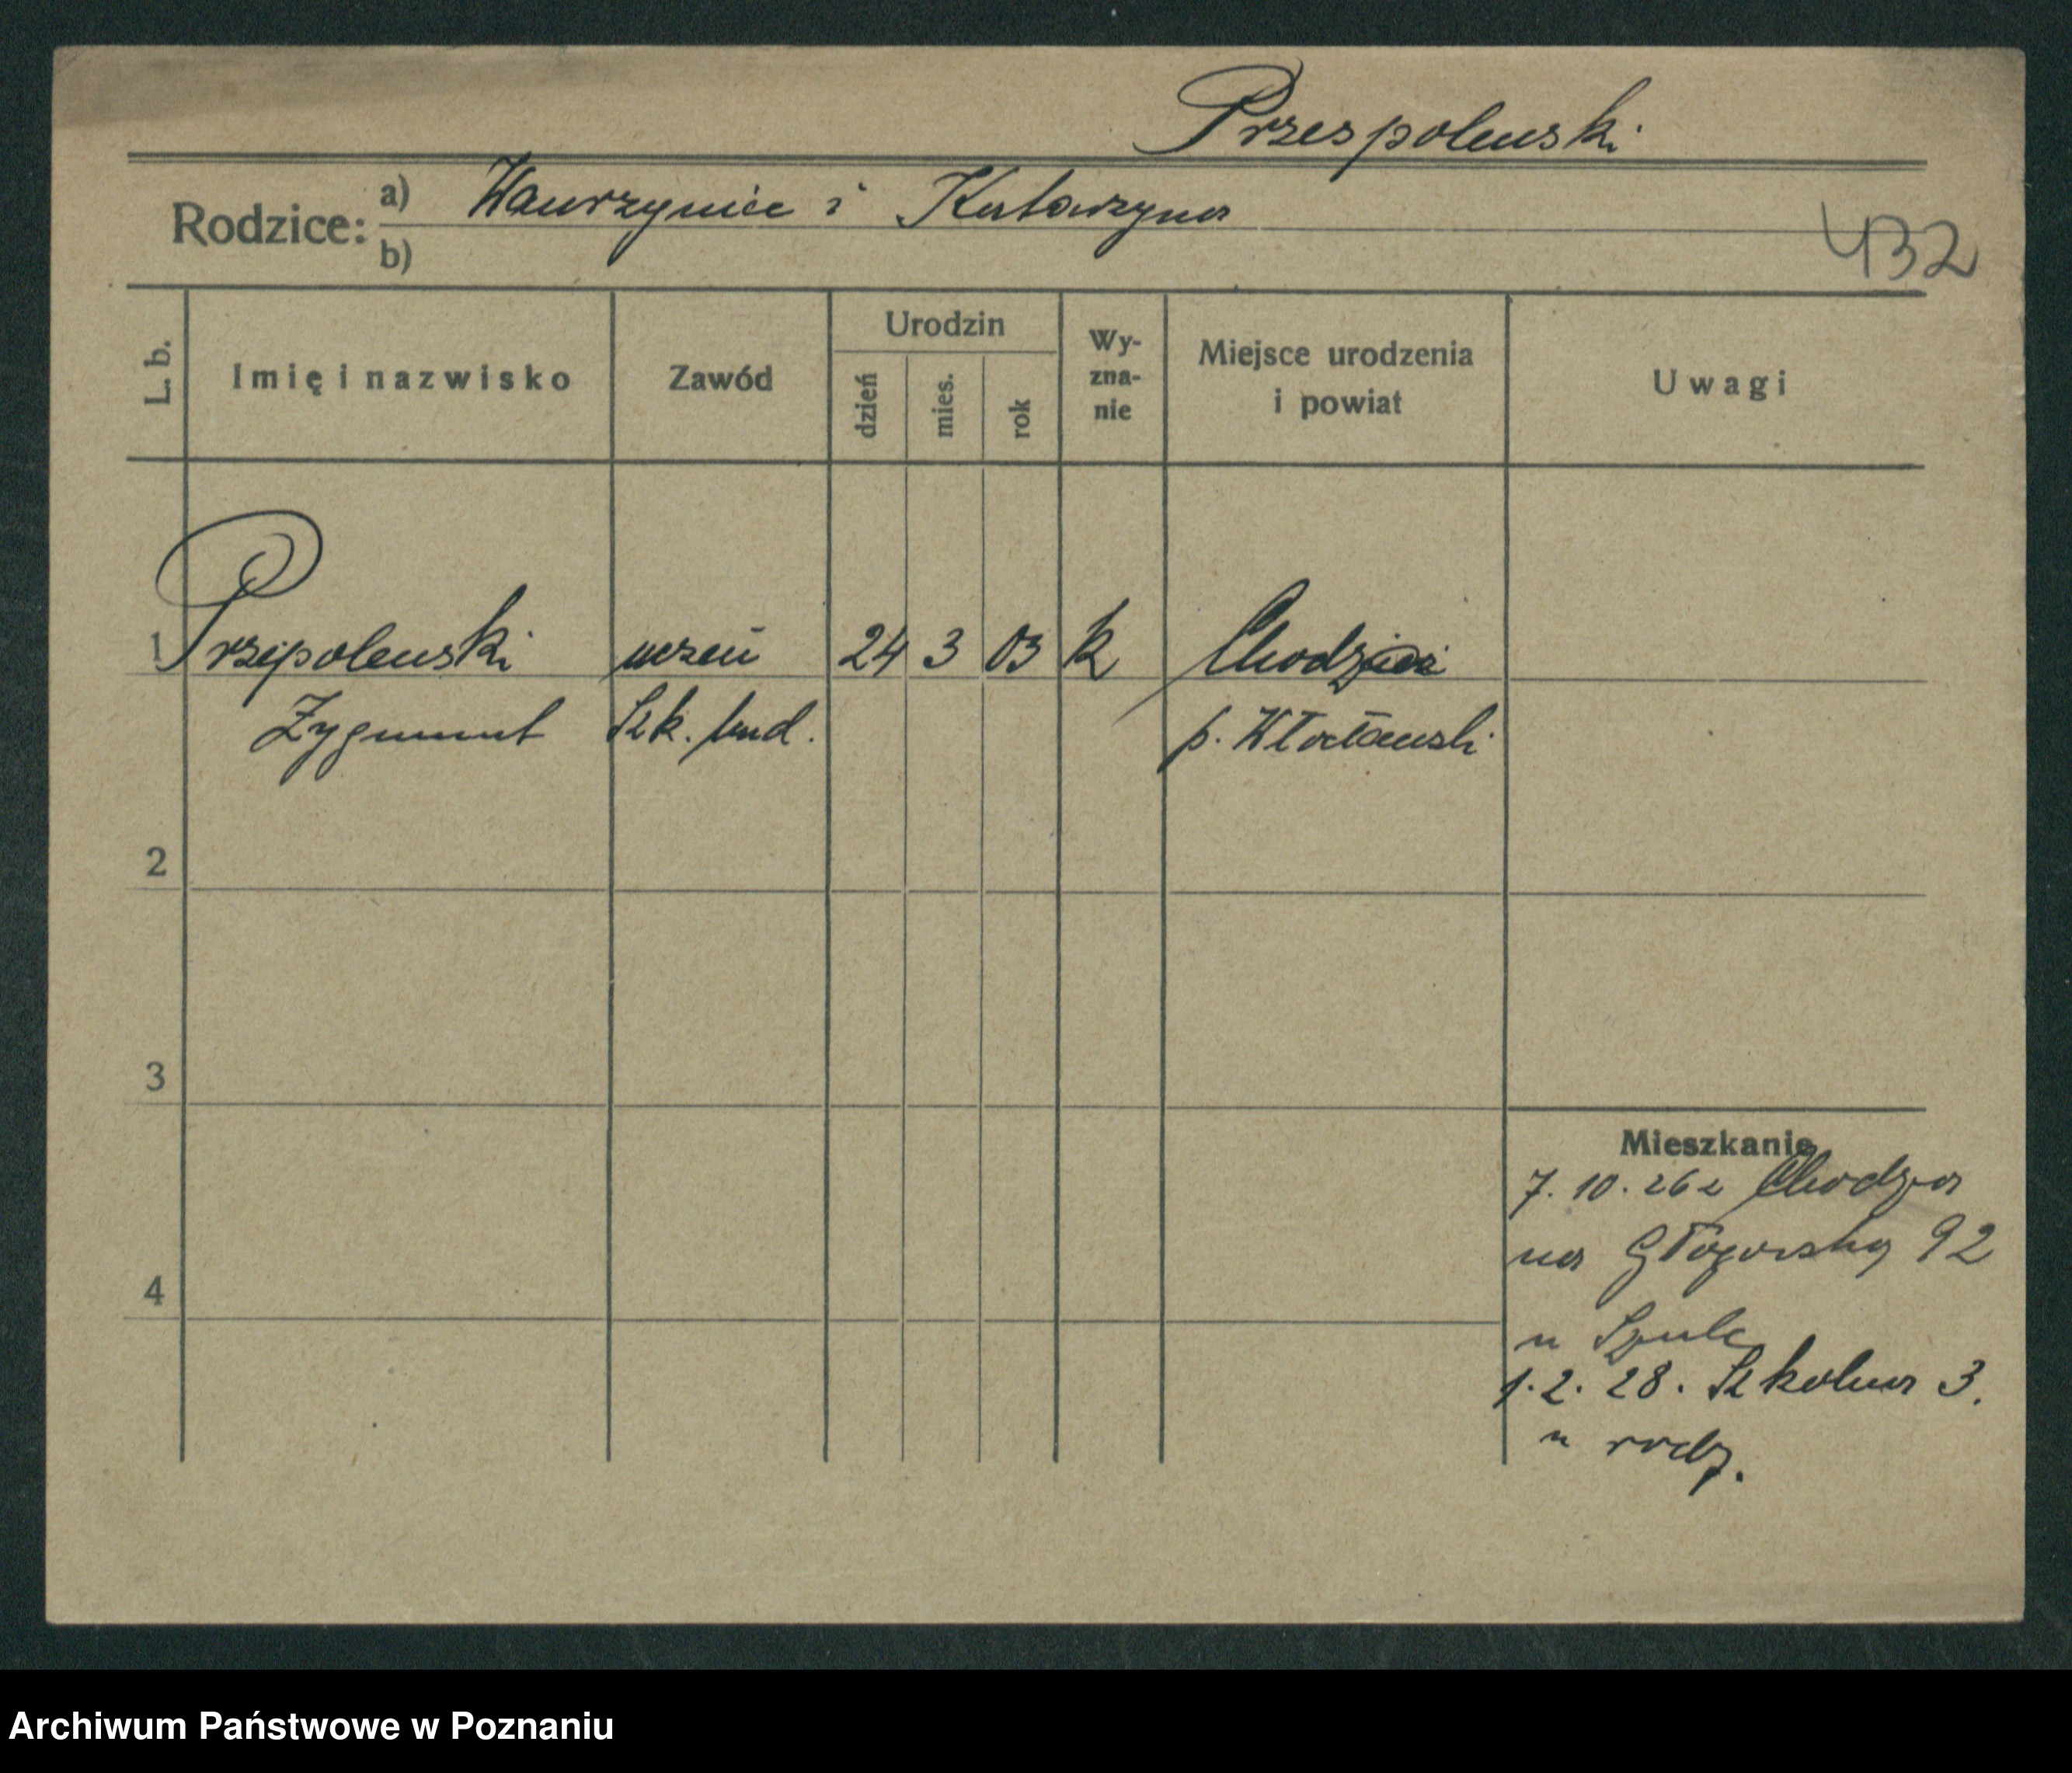 Przespolewski
Rodzice: a) Wawrzyniec i Katarzyna
b)
432
L. b. Imię i nazwisko Zawód Urodzin dzień mies. rok Wy-zna-nie Miejsce urodzenia i powiat Uwagi
1 Przepolewski uczeń 24 3 03 k Chodzież
Zygmunt Szk. bud. p. Włocławski
2
3
Mieszkanie
7. 10. 26 z Chodza
na Głogowską 92
4
u Szulc
1. 2. 28. Szkolna 3.
u rodz.
Archiwum Państwowe w Poznaniu